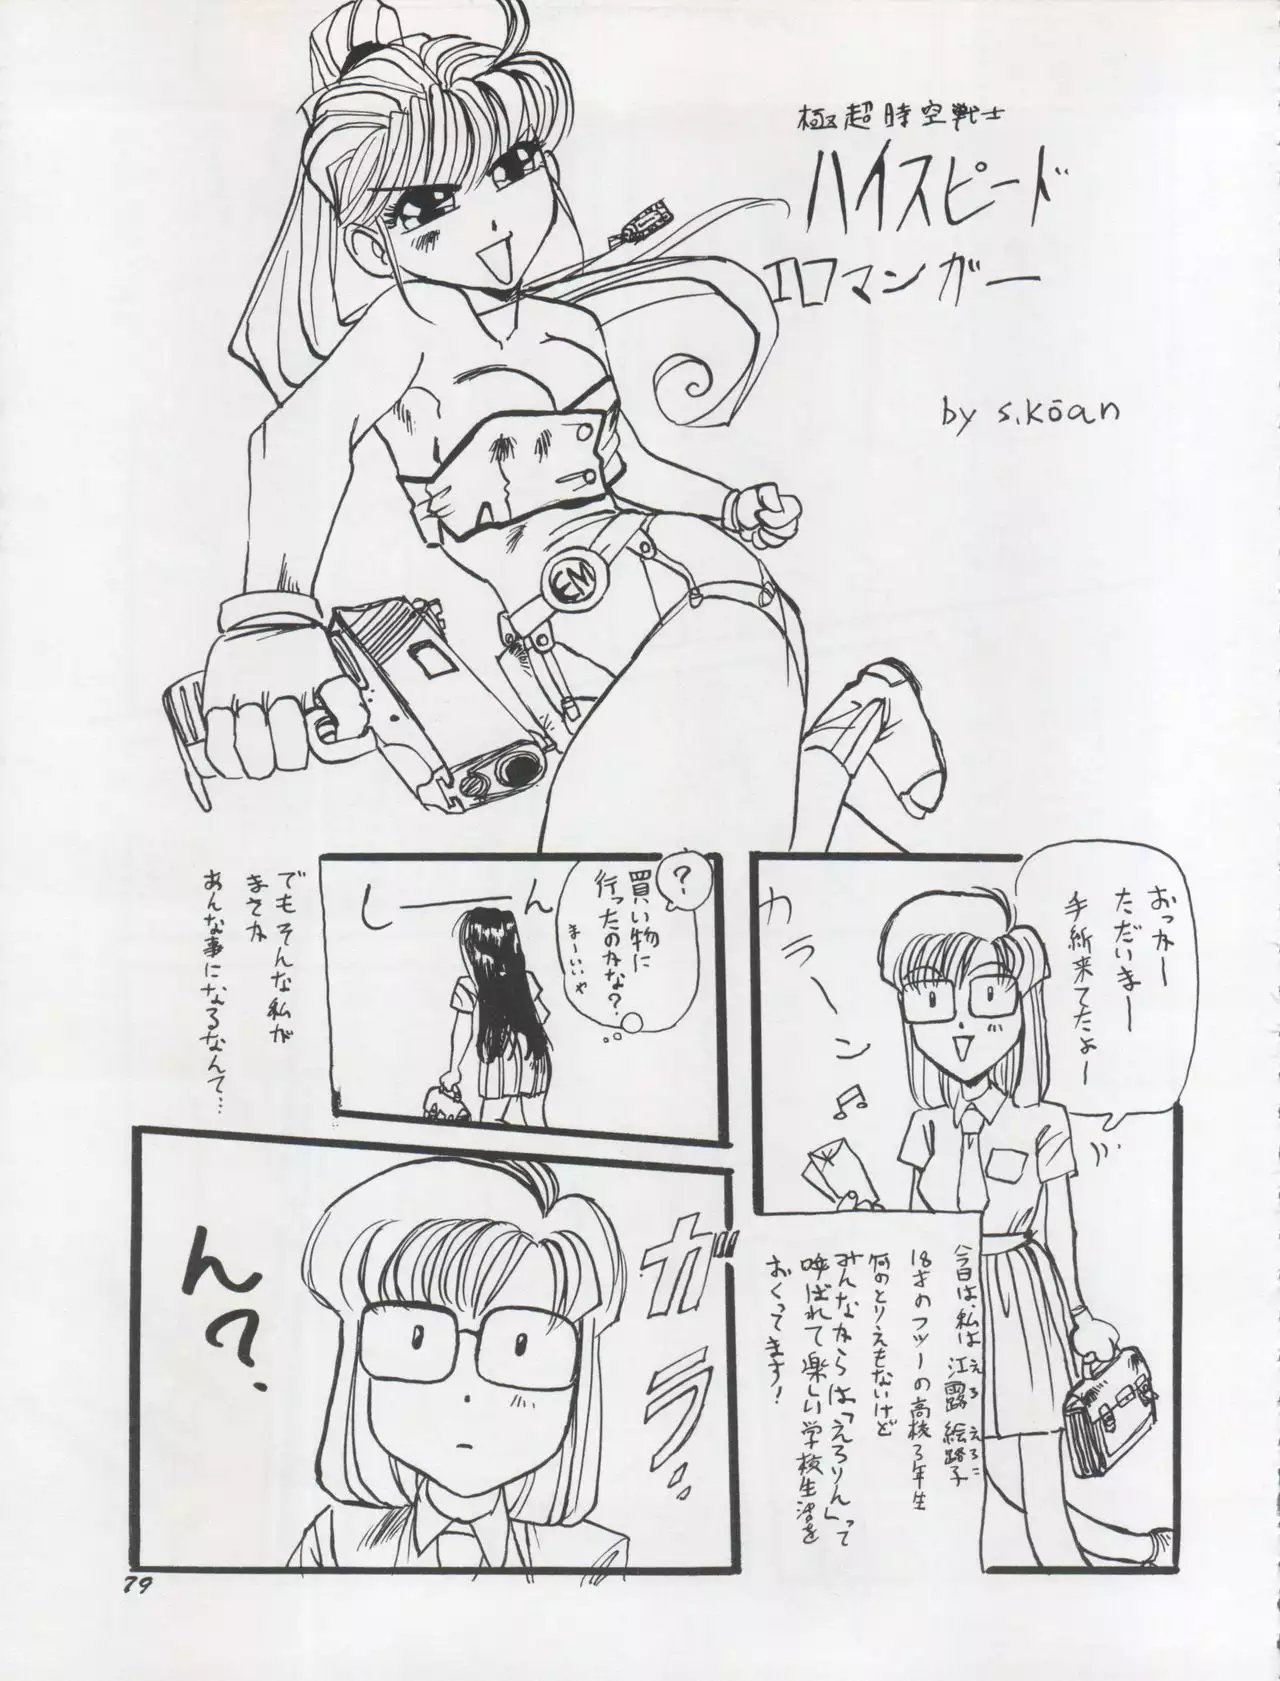 極超時空戦士
ハイスピード
エロマンガー
by s.kōan
おっかー
ただいまー
手紙来てたよー
カラーン
今日は、私は江露絵路子
えろ
えろこ
18才のフツーの高校3年生
何のとりえもないけど
みんなからは「えろりん」って
呼ばれて楽しい学校生活を
おくってます!
?
買い物に
行ったのかな?
まーいいや
しーん
でもそんな私が
まさか
あんな事になるなんて…
ガラッ
ん?
79